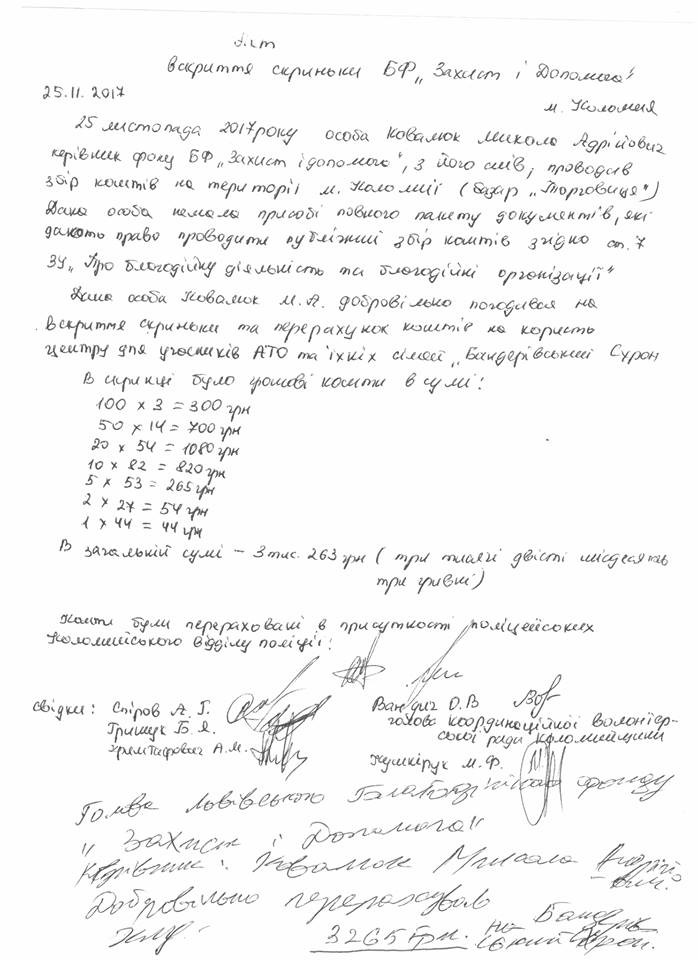 Акт
вскриття скриньки БФ „Захист і Допомога"
25.11.2017
м. Коломия
25 листопада 2017 року особа Ковалюк Микола Адрійович
керівник фонду БФ „Захист і допомога", з його слів, проводив
збір коштів на території м. Коломиї (базар „Торговиця")
Дана особа немала присобі повного пакету документів, які
дають право проводити публічний збір коштів згідно ст. 7
ЗУ „Про благодійну діяльність та благодійні організації"
Дана особа Ковалюк М.А. добровільно погодився на
вскриття скриньки та перерахунок коштів на користь
центру для учасників АТО та їхніх сімей „Бандерівський Схрон
В скринці було грошові кошти в сумі:
100 х 3 = 300 грн
50 х 14 = 700 грн
20 х 54 = 1080 грн
10 х 82 = 820 грн
5 х 53 = 265 грн
2 х 27 = 54 грн
1 х 44 = 44 грн
В загальній сумі – 3 тис. 263 грн (три тисячі двісті шісдесять
три гривні)
Кошти були перераховані в присутності поліцейських
Коломийського відділу поліції:
свідки: Спіров А. Г.
Грищук Б. Я.
А.М.
Вандич О.В
голова координаційної волонтер-
ської ради Коломийщини
Кушнірук М. Ф.
Голова Львівського Благодійного фонду
„Захист і Допомога"
Керівник: Ковалюк Микола Андрійо-
вич.
Добровільно перерахував
3265 грн. на Бандерів-
ський Схрон.